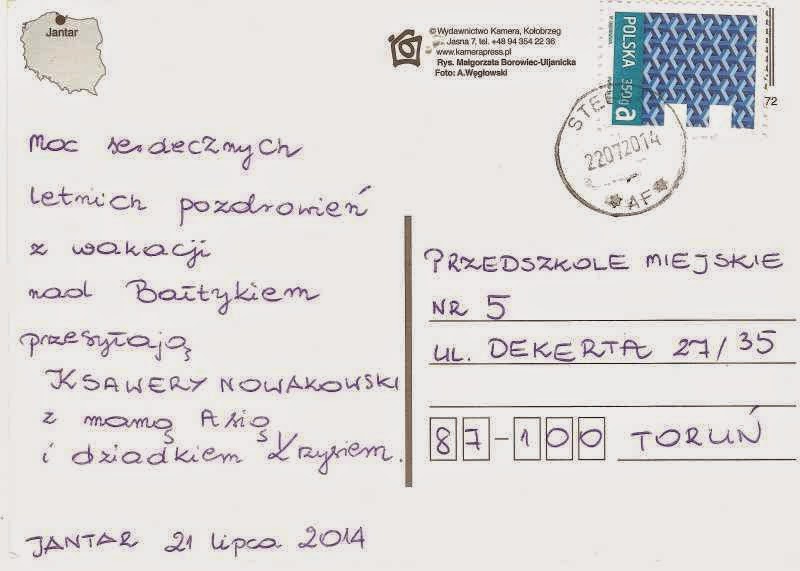 Jantar
© Wydawnictwo Kamera, Kołobrzeg
Jasna 7, tel. +48 94 354 22 36
www.kamerapress.pl
Rys. Małgorzata Borowiec-Uljanicka
Foto: A.Węgłowski
POLSKA 350g a
72
STE
22072014
AF
Moc serdecznych
letnich pozdrowień
z wakacji
nad Bałtykiem
przesyłają
KSAWERY NOWAKOWSKI
z mamą Asią
i dziadkiem Krzysiem.
JANTAR 21 lipca 2014
PRZEDSZKOLE MIEJSKIE
NR 5
UL. DEKERTA 27/35
87-100 TORUŃ